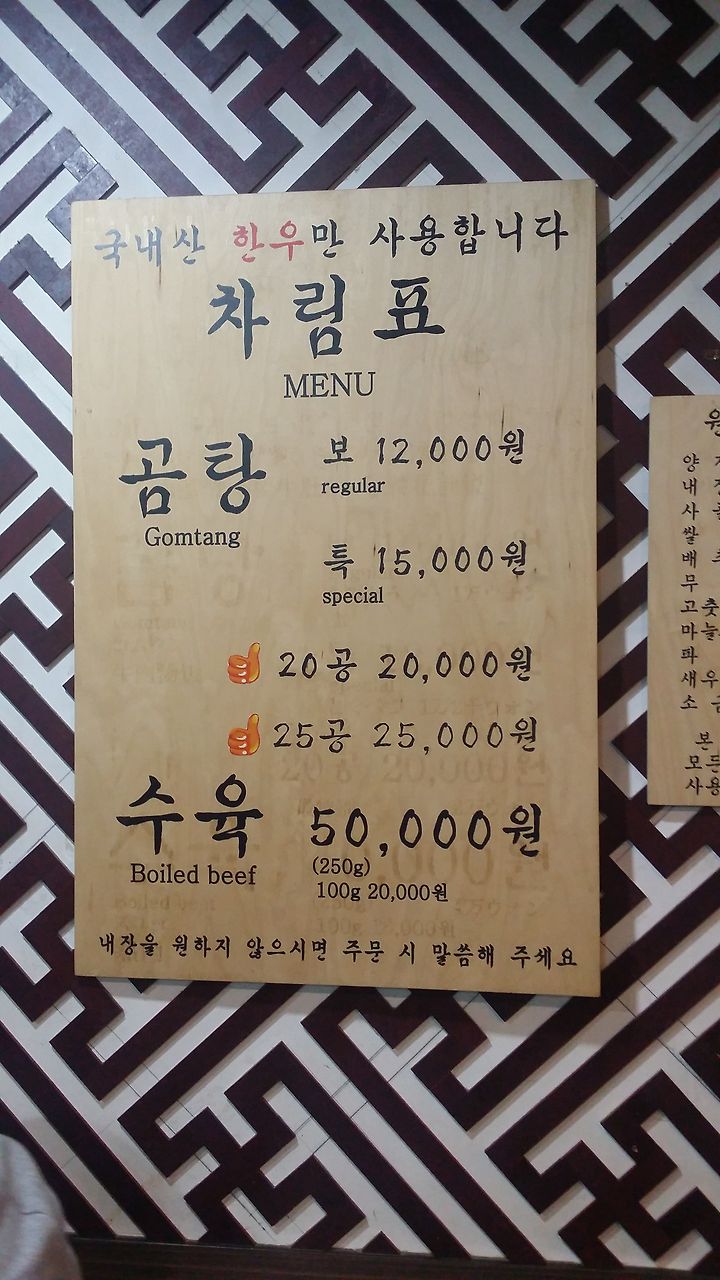 국내산 한우만 사용합니다
차림표
MENU
곰탕
Gomtang
보 12,000원
regular
특 15,000원
special
20공 20,000원
25공 25,000원
수육
Boiled beef
50,000원
(250g)
100g 20,000원
내장을 원하지 않으시면 주문 시 말씀해 주세요
원
양
내
사
쌀
배
무
고춧
마늘
파
새우
소
본
모든
사용